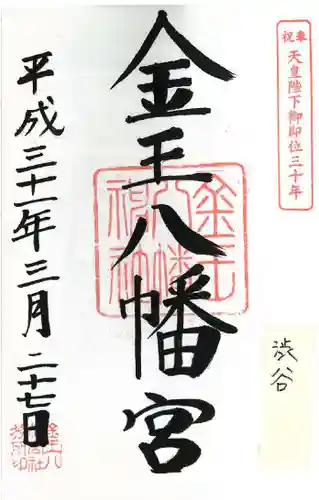 奉祝
天皇陛下御即位三十年
金王八幡宮
平成三十一年三月二十七日
渋谷
金王八幡神社